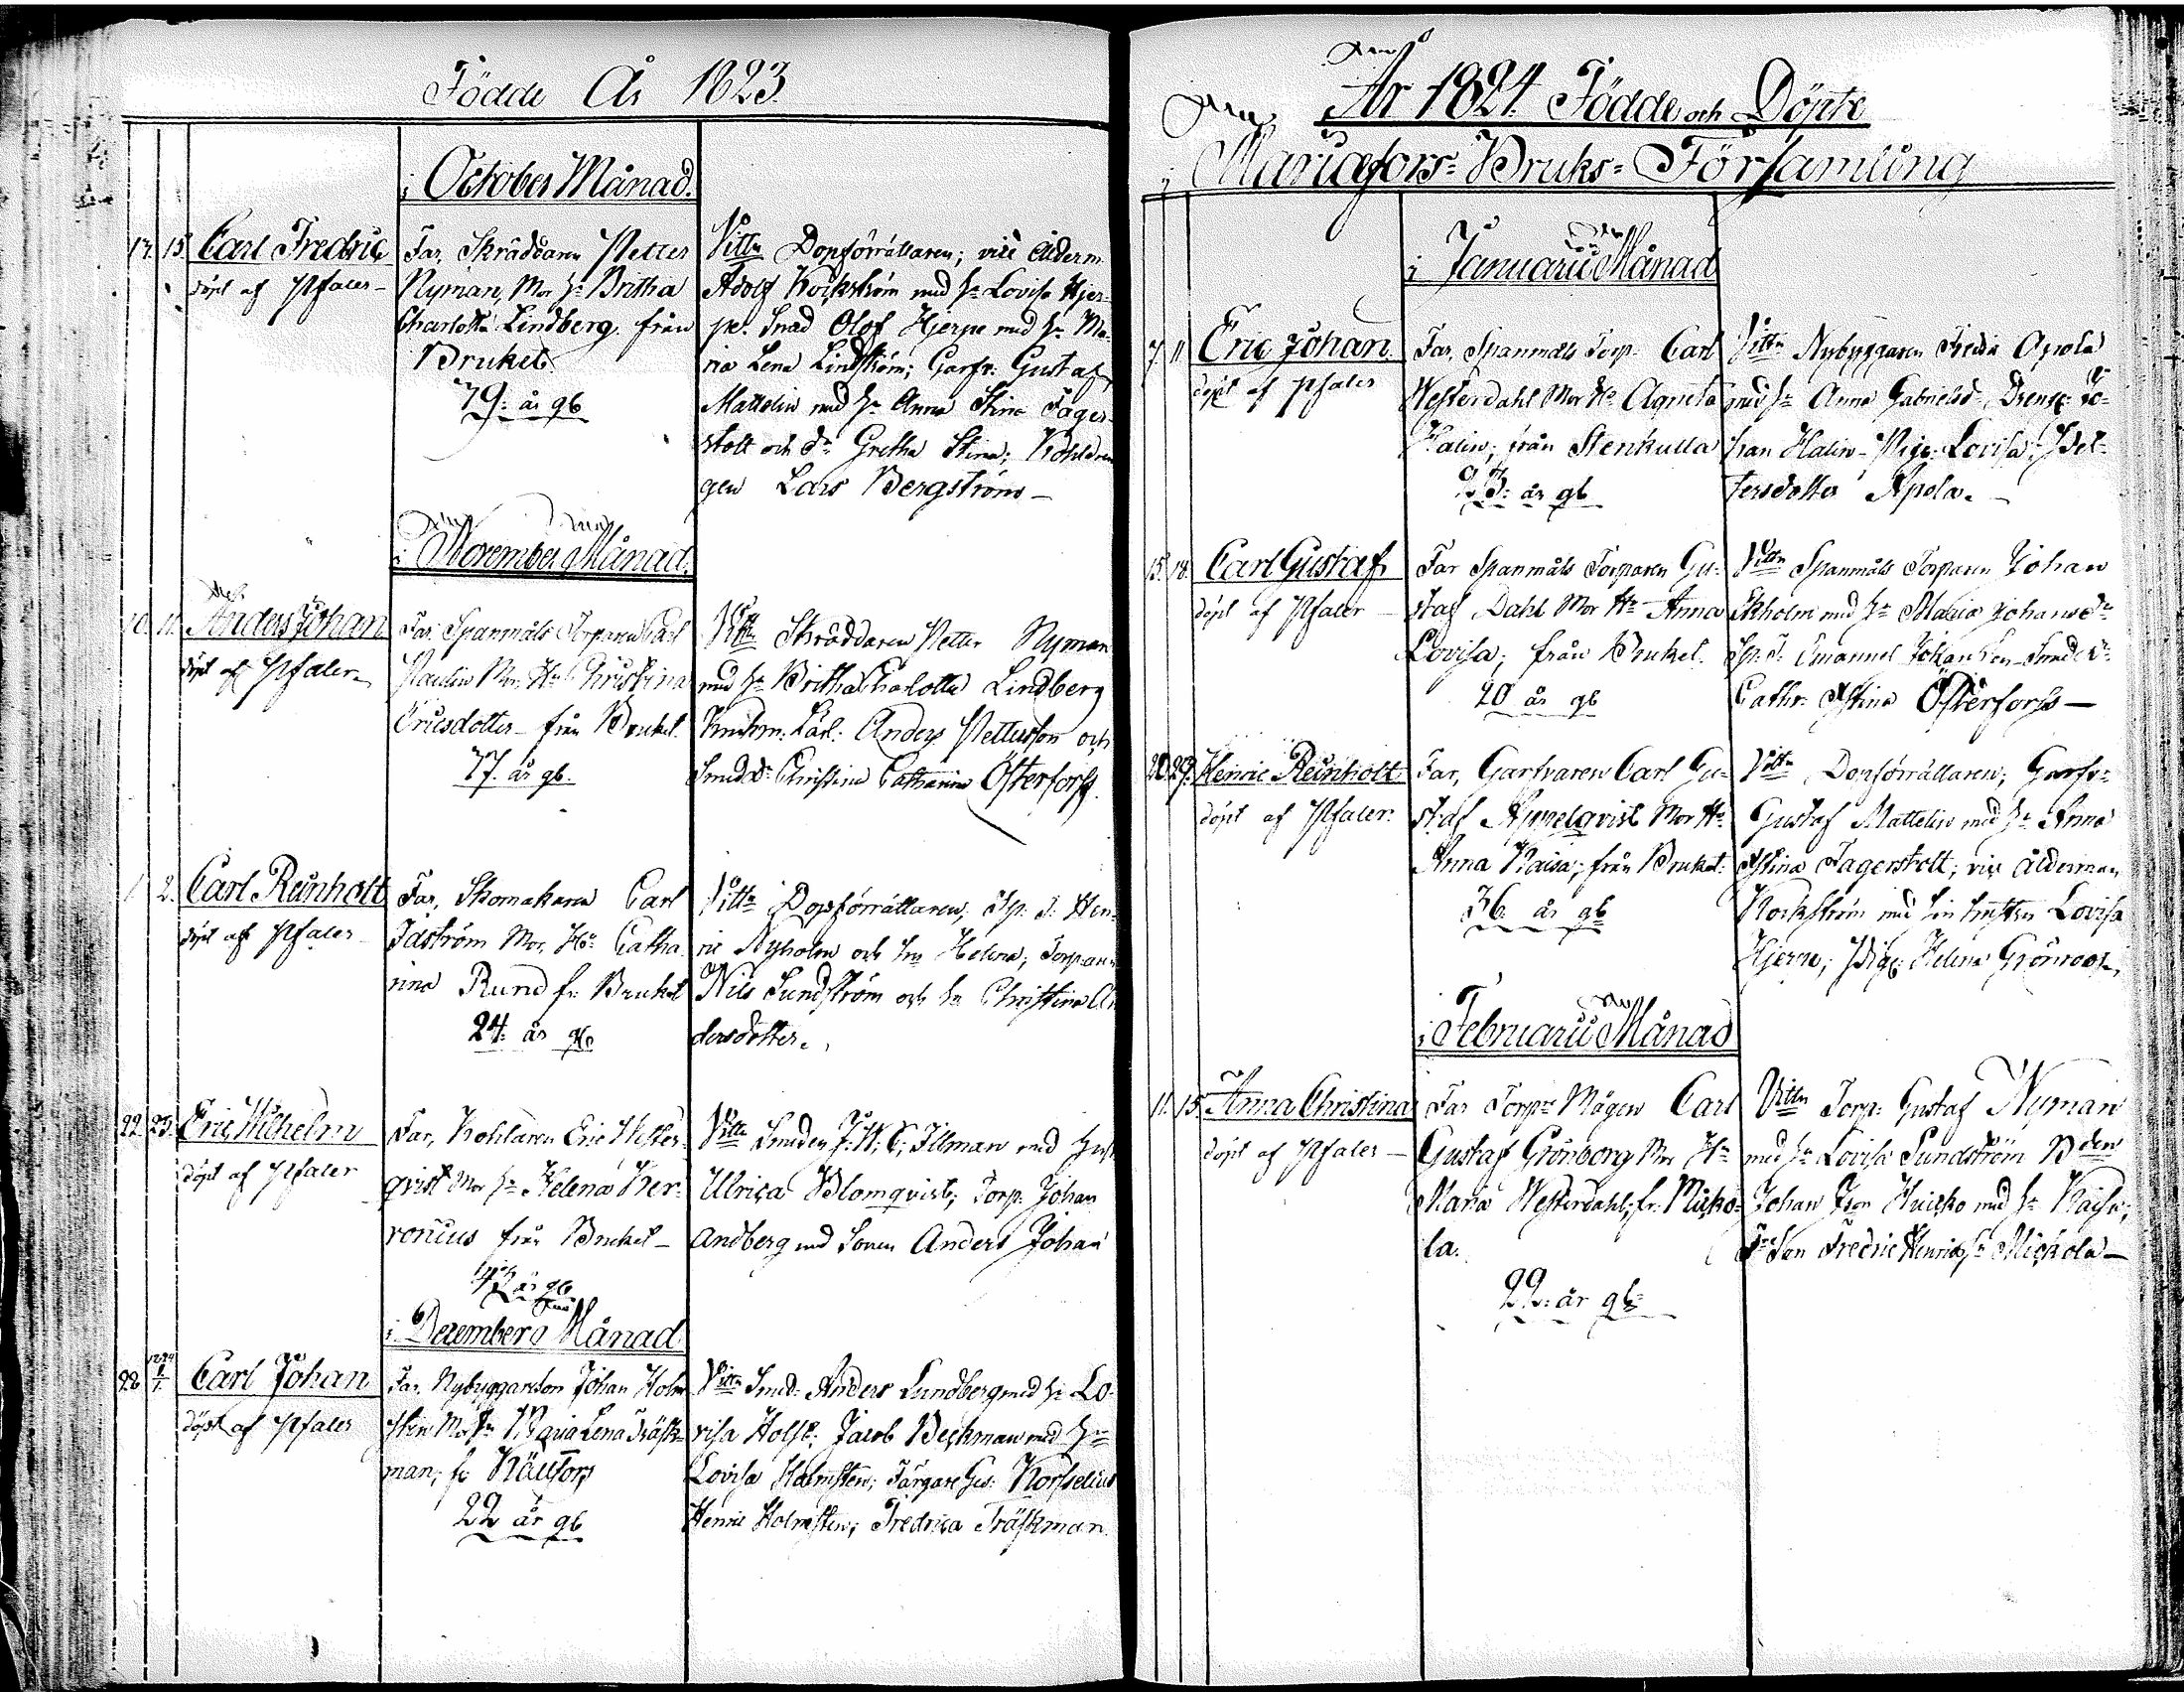 Födde År 1823.
i October Månad.
17. 15. Carl Fredric
döpt af Pfaler
Far, Skräddaren Petter
Nyman, Mor Hu Britha
Charlotta Lindberg från
Bruket.
29: år gb
Vittn Dopförrättaren; vice Ålderm
Adolf Kockström med Hu Lovisa Hjer-
pe. Smed Olof Hjerpe med Hu Ma-
ria Lena Lindström; Garfv: Gustaf
Mattelin med Hu Anna Stina Fager-
stolt och Dr Gretha Stina; Kohldren
gen Lars Bergström
i November Månad.
10. 11. Anders Johan
döpt af Pfaler
Far, Spanmåls Torparen Carl
Mor, Hu Christina
Ericsdotter från Bruket.
27. år gb.
Vittn Skräddaren Petter Nyman
med Hu Britha Charlotta Lindberg
Karl: Anders Pettersson och
Smed Dr Christina Catharina Österforss.
1 2. Carl Reinholt
döpt af Pfaler
Far, Skomakaren Carl
Idström Mor, Hu Catha
rina Rund fr: Bruket
24: år gb
Vittn Dopförrättaren, Sp: T: Hen-
ric Nyholm och Hu Helena; Torparen
Nils Sundström och Hu Christina An
dersdotter.
22. 23. Eric Wilhelm
döpt af Pfaler
Far, Kohlaren Eric Wester-
qvist Mor Hu Helena Ker-
ronius från Bruket
42 år gb
Vittn Smeden J. W. C. Illman med Hust
Ulrica Blomqvist; Torp: Johan
Andberg med Sonen Anders Johan
i December Månad
28 1824 1/1. Carl Johan
döpt af Pfaler
Far, Nybyggareson Johan Holm
sten Mor Hu Maria Lena Träsk-
man; fr Näutfors
22 år gb
Vittn Smed: Anders Lundberg med Hu Lo-
visa Holst; Jacob Beckman med Hu
Lovisa Holmsten; Färgare Ges: Korsselius
Henric Holmsten; Fredrica Träskman.
År 1824. Födde och Döpte
i Mariæfors-Bruks-Församling
i Januarii Månad
7. 11 Eric Johan.
döpt af Pfaler
Far, Spanmåls Torp: Carl
Westerdahl Mor Hu Agneta
Halin; från Stenkulla
23: år gb
Vittn Nybyggaren Fredr Apola
med Hu Anna Gabrielsd. Dreng: Jo-
han Halin - Pig: Lovisa Pet-
tersdotter Apola.
15. 18. Carl Gustaf
döpt af Pfaler
Far Spanmåls Torparen Gu-
staf Dahl Mor Hu Anna
Lovisa; från Bruket.
20 år gb
Vittn Spanmåls Torparen Johan
Ekholm med Hu Maria Johansdr
Sp: T: Emanuel Johansson - Smed Dr
Cathr: Stina Österforss
20. 27. Henric Reinholt
döpt af Pfaler.
Far, Garfvaren Carl Gu-
staf Appelqvist Mor Hu
Anna Kaisa; från Bruket.
36. år gb
Vittn Dopförrättaren; Garfv:
Gustaf Mattelin med Hu Anna
Stina Fagerstolt; vice Ålderman
Kockström med sin hustru Lovisa
Hjerpe; Pig: Helena Grönroos
i Februarii Månad
11. 15. Anna Christina
döpt af Pfaler
Far Torpr Mågen Carl
Gustaf Grönborg Mor Hu
Maria Westerdahl; fr: Micko-
la.
22: år gb
Vittn Torp: Gustaf Nyman
med Hu Lovisa Sundström Bden
Johan Json Huicko med Hu Kaisa;
Son Fredric Henrics Mickola